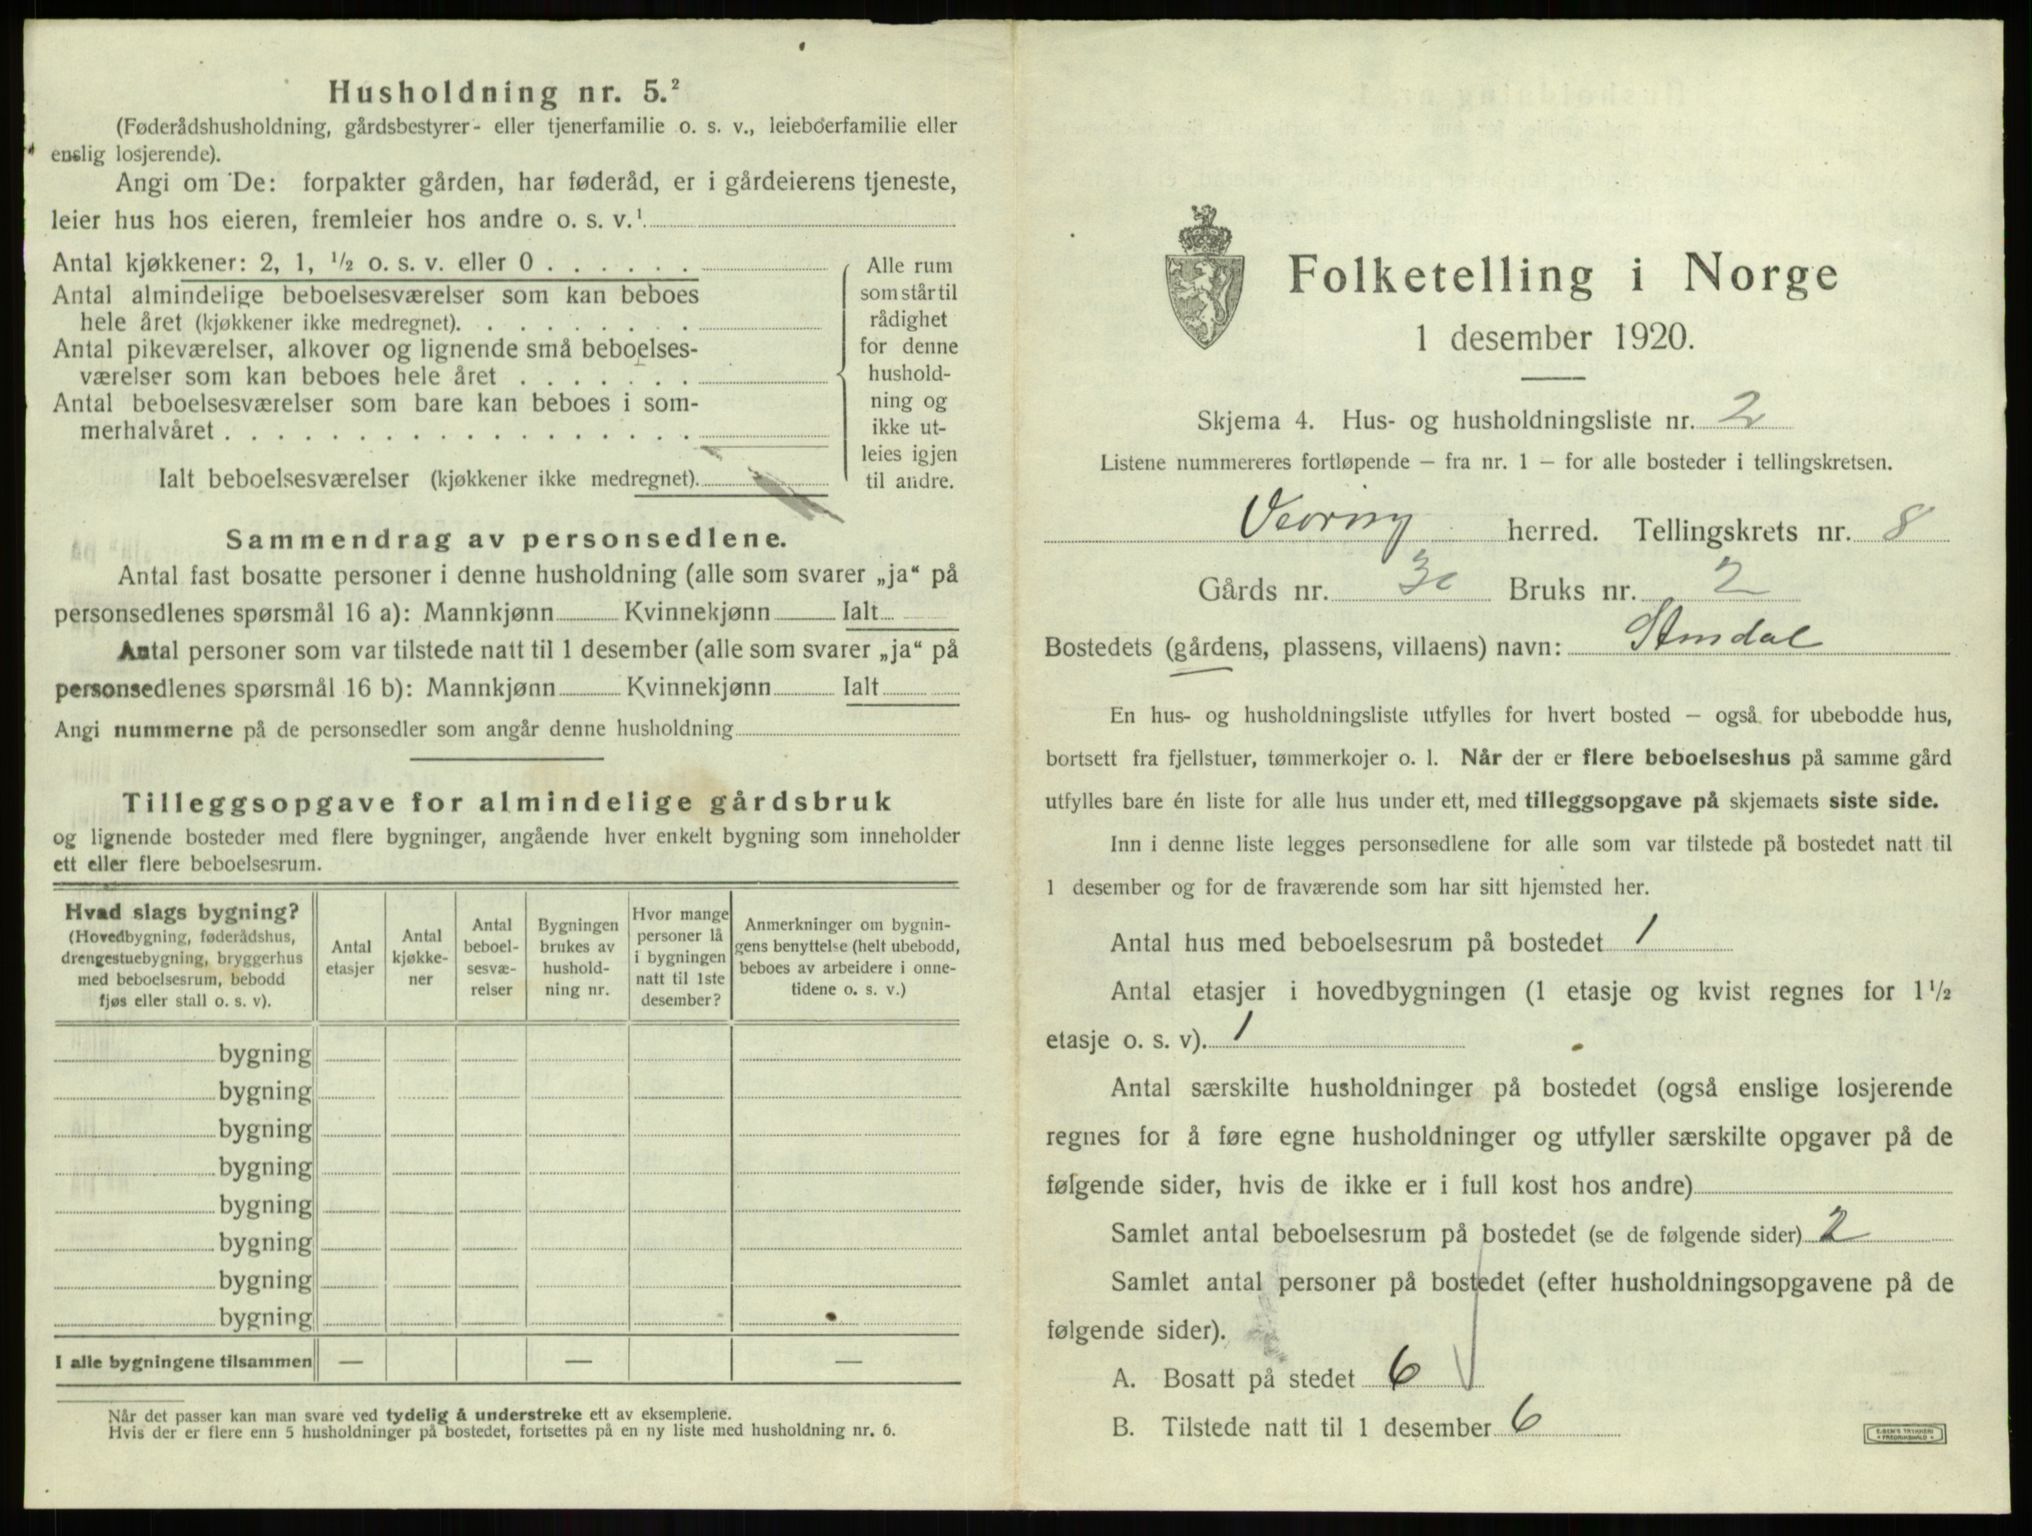 Husholdning nr. 5.²
(Føderådshusholdning, gårdsbestyrer- eller tjenerfamilie o. s. v., leieboerfamilie eller
enslig losjerende).
Angi om De: forpakter gården, har føderåd, er i gårdeierens tjeneste,
leier hus hos eieren, fremleier hos andre o. s. v.¹
Antal kjøkkener: 2, 1, ¹/₂ o. s. v. eller 0
Antal almindelige beboelsesværelser som kan beboes
hele året (kjøkkener ikke medregnet).
Antal pikeværelser, alkover og lignende små beboelses-
værelser som kan beboes hele året
Antal beboelsesværelser som bare kan beboes i som-
merhalvåret
Ialt beboelsesværelser (kjøkkener ikke medregnet).
Alle rum
som står til
rådighet
for denne
hushold-
ning og
ikke ut-
leies igjen
til andre.
Sammendrag av personsedlene.
Antal fast bosatte personer i denne husholdning (alle som svarer „ja“ på
personsedlenes spørsmål 16 a): Mannkjønn Kvinnekjønn Ialt
Antal personer som var tilstede natt til 1 desember (alle som svarer „ja“ på
personsedlenes spørsmål 16 b): Mannkjønn Kvinnekjønn Ialt
Angi nummerne på de personsedler som angår denne husholdning
Tilleggsopgave for almindelige gårdsbruk
og lignende bosteder med flere bygninger, angående hver enkelt bygning som inneholder
ett eller flere beboelsesrum.
Hvad slags bygning?
(Hovedbygning, føderådshus,
drengestuebygning, bryggerhus
med beboelsesrum, bebodd
fjøs eller stall o. s. v).
Antal
etasjer
Antal
kjøkke-
ner
Antal
beboel-
sesvæ-
relser
Bygningen
brukes av
hushold-
ning nr.
Hvor mange
personer lå
i bygningen
natt til 1ste
desember?
Anmerkninger om bygnin-
gens benyttelse (helt ubebodd,
beboes av arbeidere i onne-
tidene o. s. v.)
bygning
bygning
bygning
bygning
bygning
bygning
bygning
bygning
I alle bygningene tilsammen — — —
Når det passer kan man svare ved tydelig å understreke ett av eksemplene.
Hvis der er flere enn 5 husholdninger på bostedet, fortsettes på en ny liste med husholdning nr. 6.
Folketelling i Norge
1 desember 1920.
Skjema 4. Hus- og husholdningsliste nr. 2
Listene nummereres fortløpende – fra nr. 1 – for alle bosteder i tellingskretsen.
Vevring herred. Tellingskrets nr. 8
Gårds nr. 30 Bruks nr. 2
Bostedets (gårdens, plassens, villaens) navn:
En hus- og husholdningsliste utfylles for hvert bosted – også for ubebodde hus,
bortsett fra fjellstuer, tømmerkojer o. l. Når der er flere beboelseshus på samme gård
utfylles bare én liste for alle hus under ett, med tilleggsopgave på skjemaets siste side.
Inn i denne liste legges personsedlene for alle som var tilstede på bostedet natt til
1 desember og for de fraværende som har sitt hjemsted her.
Antal hus med beboelsesrum på bostedet 1
Antal etasjer i hovedbygningen (1 etasje og kvist regnes for 1¹/₂
etasje o. s. v). 1
Antal særskilte husholdninger på bostedet (også enslige losjerende
regnes for å føre egne husholdninger og utfyller særskilte opgaver på de
følgende sider, hvis de ikke er i full kost hos andre)
Samlet antal beboelsesrum på bostedet (se de følgende sider) 2
Samlet antal personer på bostedet (efter husholdningsopgavene på de
følgende sider).
A. Bosatt på stedet 6
B. Tilstede natt til 1 desember 6